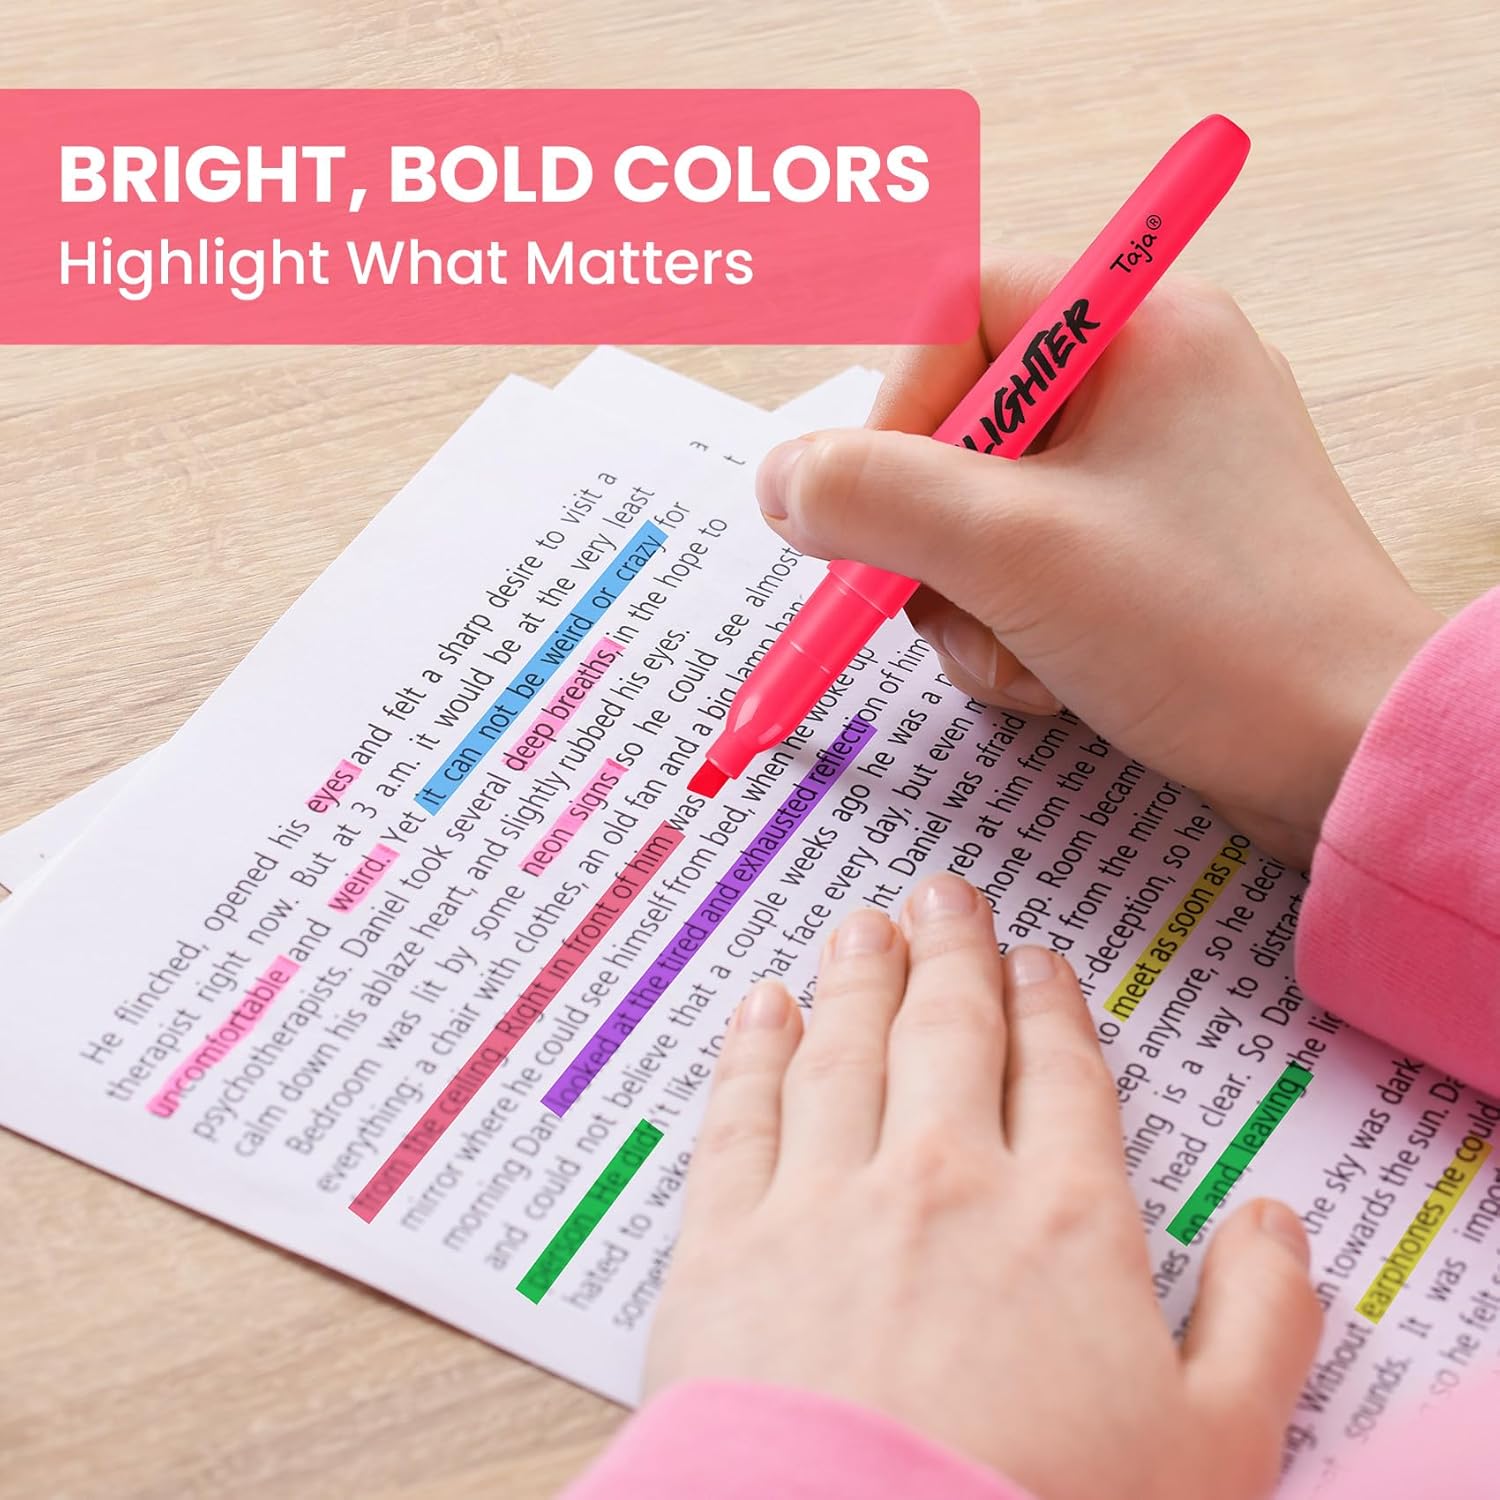 BRIGHT, BOLD COLORS
Highlight What Matters
Taja®
LIGHTER
3
t
He flinched, opened his eyes and felt a sharp desire to visit a
therapist right now. But at 3 a.m. it would be at the very least
uncomfortable and weird. Yet it can not be weird or crazy for
psychotherapists. Daniel took several deep breaths, in the hope to
calm down his ablaze heart, and slightly rubbed his eyes.
Bedroom was lit by some neon signs so he could see almost
everything: a chair with clothes, an old fan and a big lamp
from the ceiling. Right in front of him was
mirror where he could see himself from bed, when he woke up
morning Dan looked at the tired and exhausted reflection of him
and could not believe that a couple weeks ago he was a
person. He didn't like to that face every day, but even
hated to wake ht. Daniel was afraid
someth reb at him from
phone from the
app. Room became
ed from the mirror
r-deception, so he
to meet as soon as po
eep anymore, so he deci
ning is a way to distract
his head clear. So Dani
on and leaving the
the sky was dark
an towards the sun. Da
Without earphones he could
sounds. It was impor
so he felt